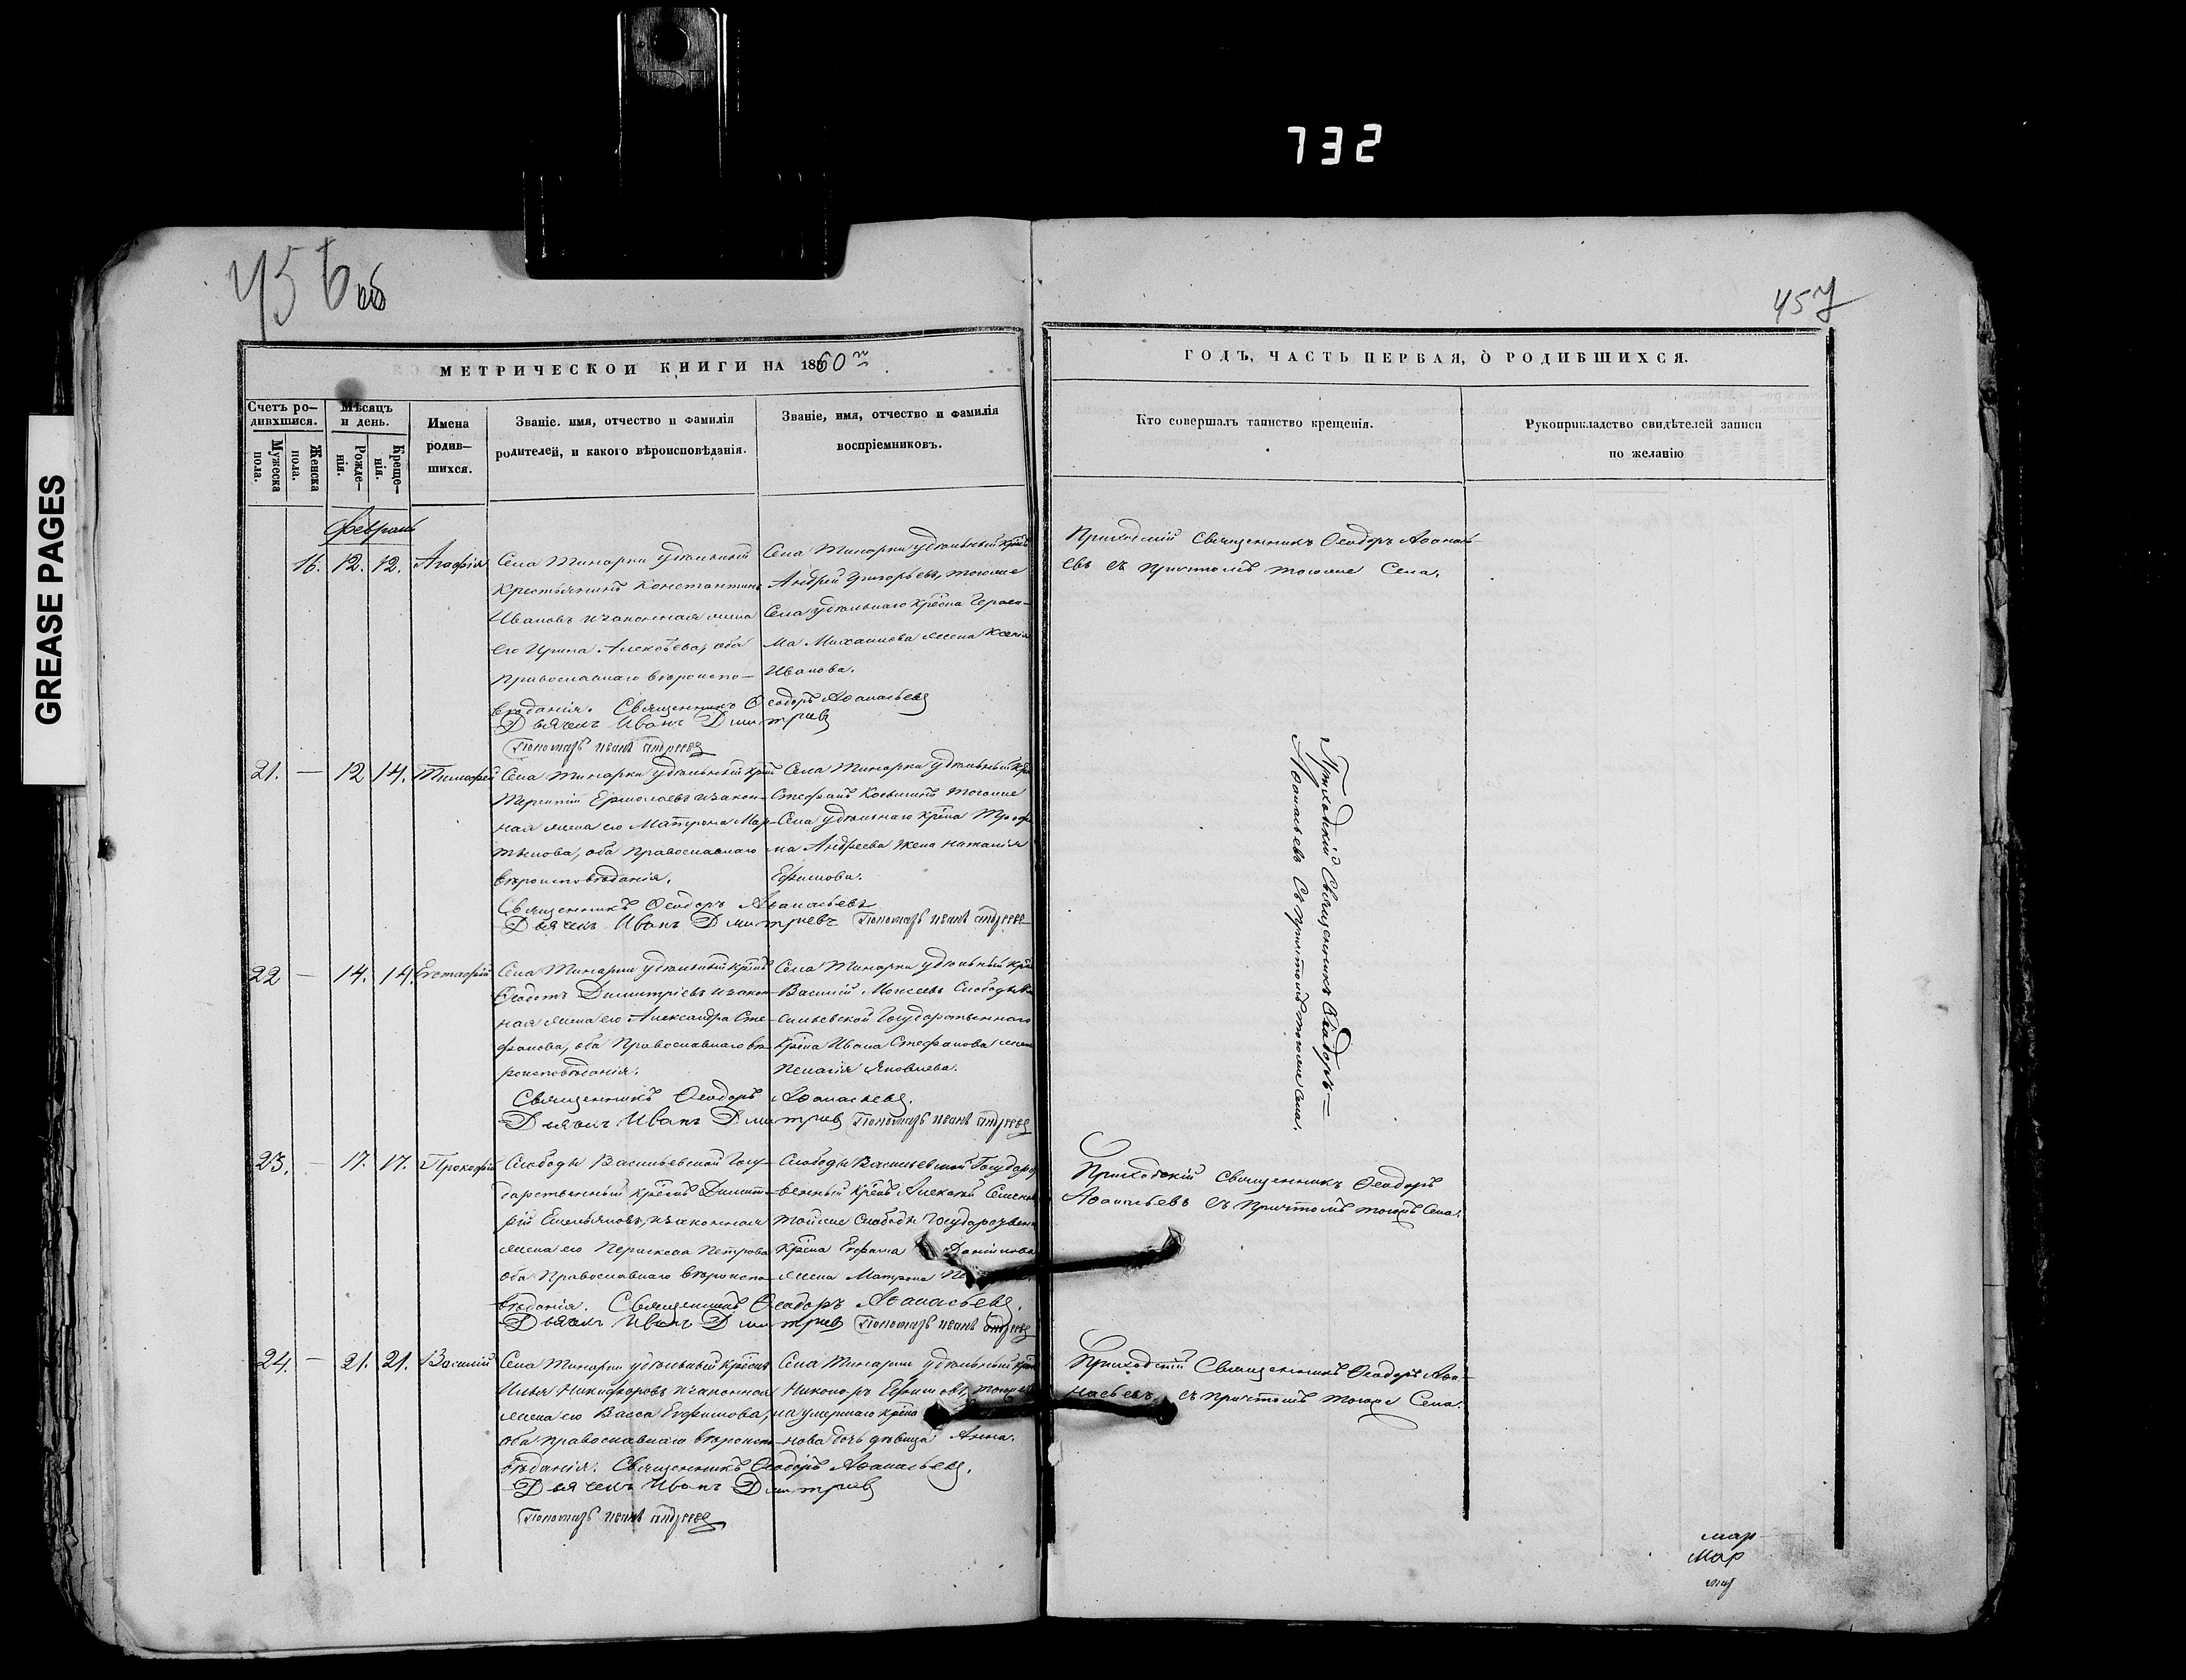 732
GREASE PAGES
456 об
457
МЕТРИЧЕСКОЙ КНИГИ НА 1860 й
ГОДЪ, ЧАСТЬ ПЕРВАЯ, О РОДИВШИХСЯ.
Счетъ ро-
дившихся.
Мужеска
пола.
Женска
пола.
Мѣсяцъ
и день.
Рожде-
нія.
Креще-
нія.
Имена
родив-
шихся.
Званіе. имя, отчество и фамилія
родителей, и какого вѣроисповѣданія.
Званіе, имя, отчество и фамилія
воспріемниковъ.
Кто совершалъ таинство крещенія.
Рукоприкладство свидѣтелей записи
по желанію
Февраль
16. 12. 12. Агафія
Села удѣльный
Крестьянинъ Константинъ
Ивановъ и законная жена
его Ирина Алексѣева, оба
православнаго вѣроиспо-
вѣданія. Священникъ Ѳеодоръ Аѳанасьевъ
Дьячекъ Иванъ Дмитріевъ
Пономарь Иванъ Андреевъ
Села удѣльный
Андрей Григорьевъ, тогоже
Села удѣльнаго крѣна Гераси-
ма Михаилова жена Ксенія
Иванова.
Приходскій Священникъ Ѳеодоръ Аѳанась
евъ съ причтомъ тогоже Села.
21. — 12 14. Тимофей
Села удѣльный
Терентій Ермолаевъ и закон-
ная жена его Матрона Мар-
тынова, оба Православнаго
вѣроисповѣданія.
Священникъ Ѳеодоръ Аѳанасьевъ
Дьячекъ Иванъ Дмитріевъ Пономарь Иванъ Андреевъ
Села удѣльный
Стефанъ тогоже
Села удѣльнаго крѣна
ма Андреева жена Наталія
Ефимова.
Приходскій Священникъ Ѳеодоръ
Аѳанасьевъ съ причтомъ тогоже Села.
22 — 14. 14. Евстафій
Села удѣльный
Ѳедотъ Димитріевъ и закон-
ная жена его Александра Сте-
фанова, оба Православнаго вѣ-
роисповѣданія.
Священникъ Ѳеодоръ Аѳанасьевъ.
Дьячекъ Иванъ Дмитріевъ Пономарь Иванъ Андреевъ
Села удѣльный
Василій Моисеевъ Слободы Ва
сильевской Государственнаго
крѣна Ивана Стефанова жена
Пелагія Яковлева.
23. — 17. 17. Прокофій
Слободы Васильевской Госу-
дарственный Димит-
рій Емельяновъ, и законная
жена его Параскева Петрова
оба Православнаго вѣроиспо-
вѣданія. Священникъ Ѳеодоръ Аѳанасьевъ.
Дьячекъ Иванъ Дмитріевъ Пономарь Иванъ Андреевъ
Слободы Васильевской Государ
венный Алексѣй Семенов
тойже Слободы
крѣна Евфима Данилова
жена Матрона
Приходскій Священникъ Ѳеодоръ
Аѳанасьевъ съ причтомъ тогожъ Села.
24. — 21. 21. Василій
Села удѣльный
Илья Никифоровъ и законная
жена его Васса Евфимова,
оба православнаго вѣроиспо-
вѣданія. Священникъ Ѳеодоръ Аѳанасьевъ.
Дьячекъ Иванъ Дмитріевъ
Пономарь Иванъ Андреевъ
Села удѣльный
Никаноръ Ефимовъ,
умершаго крѣна
нова дочь дѣвица Анна.
Приходскій Священникъ Ѳеодоръ Аѳа-
насьевъ, съ причтомъ тогоже Села.
мар
мар